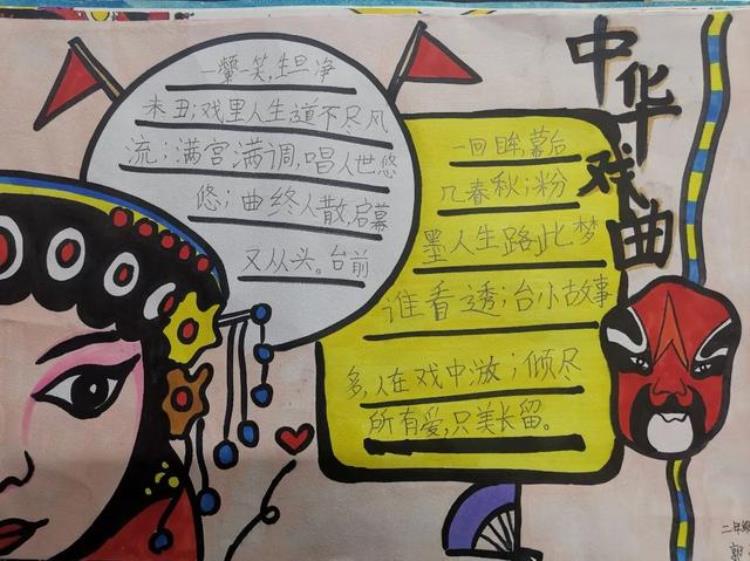 中华戏曲
一颦一笑,生旦净
末丑;戏里人生道不尽风
流;满宫满调,唱人世悠
悠;曲终人散,启幕
又从头。台前
一回眸,幕后
几春秋;粉
墨人生路此梦
谁看透;台小故事
多,人在戏中游;倾尽
所有爱,只美长留。
二年级
郭